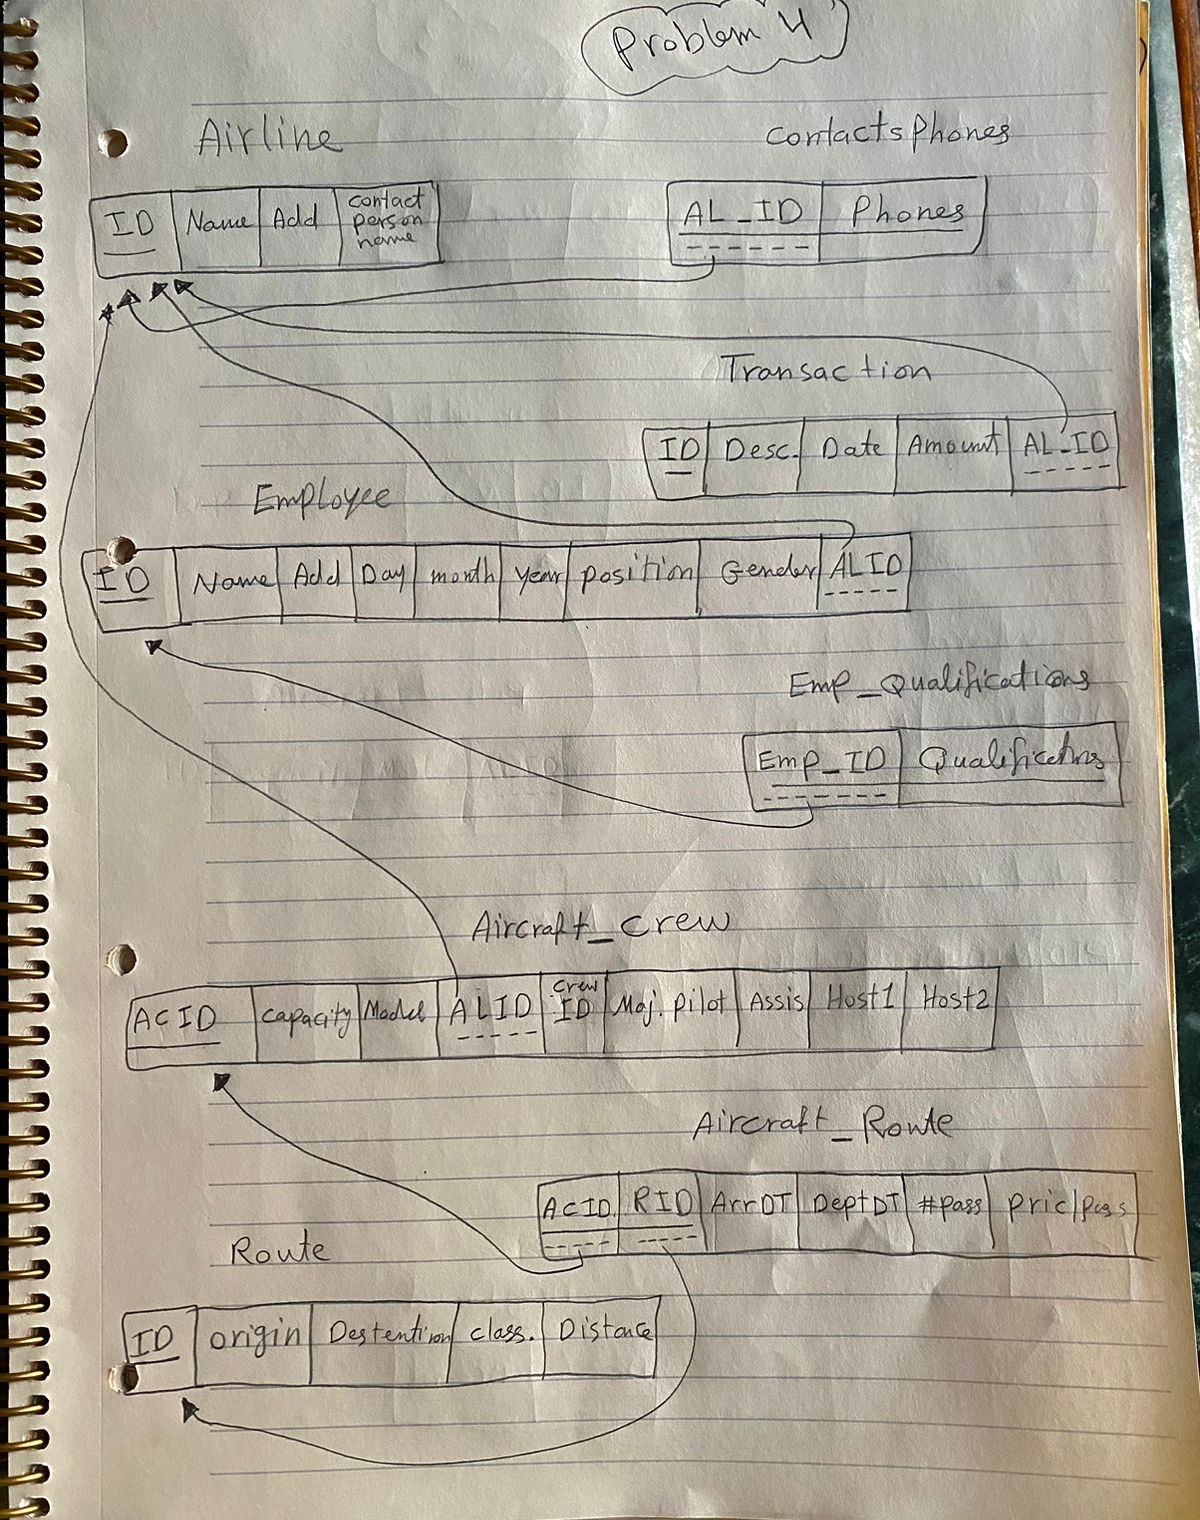 Problem 4
Airline
contactsPhones
ID Name Add contact person name
AL_ID Phones
Transaction
ID Desc. Date Amount AL_ID
Employee
ID Name Add Day month year position Gender ALID
Emp_Qualifications
Emp_ID Qualificatins
Aircraft_crew
ACID capacity Model ALID crew ID Maj. pilot Assis Host1 Host2
Aircraft_Route
ACID RID ArrDT DeptDT #pass pric/pass
Route
ID origin Destention class. Distance